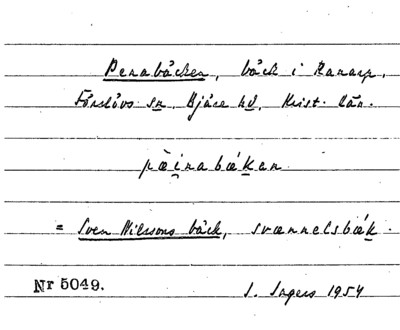 Penabäcken, bäck i Ranarp,
Förslövs sn, Bjäre hd, Krist. län.
pæ̀inabǽkan
= Sven Nilssons bäck, svænnelsbǽk.
Nr 5049. S. Ingers 1954